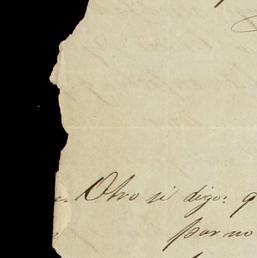 Otro si digo: q
por no